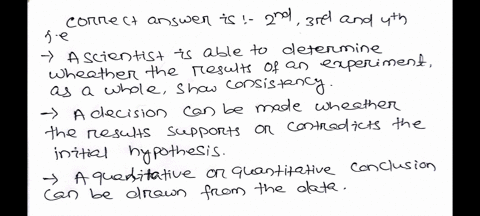 correct answer is :- 2nd, 3rd and 4th
i.e
→ A scientist is able to determine
wheather the results of an experiment,
as a whole, show consistancy.
→ A decision can be made wheather
the results supports or contradicts the
initial hypothesis.
→ A qualitative or quantitative conclusion
can be drawn from the data.